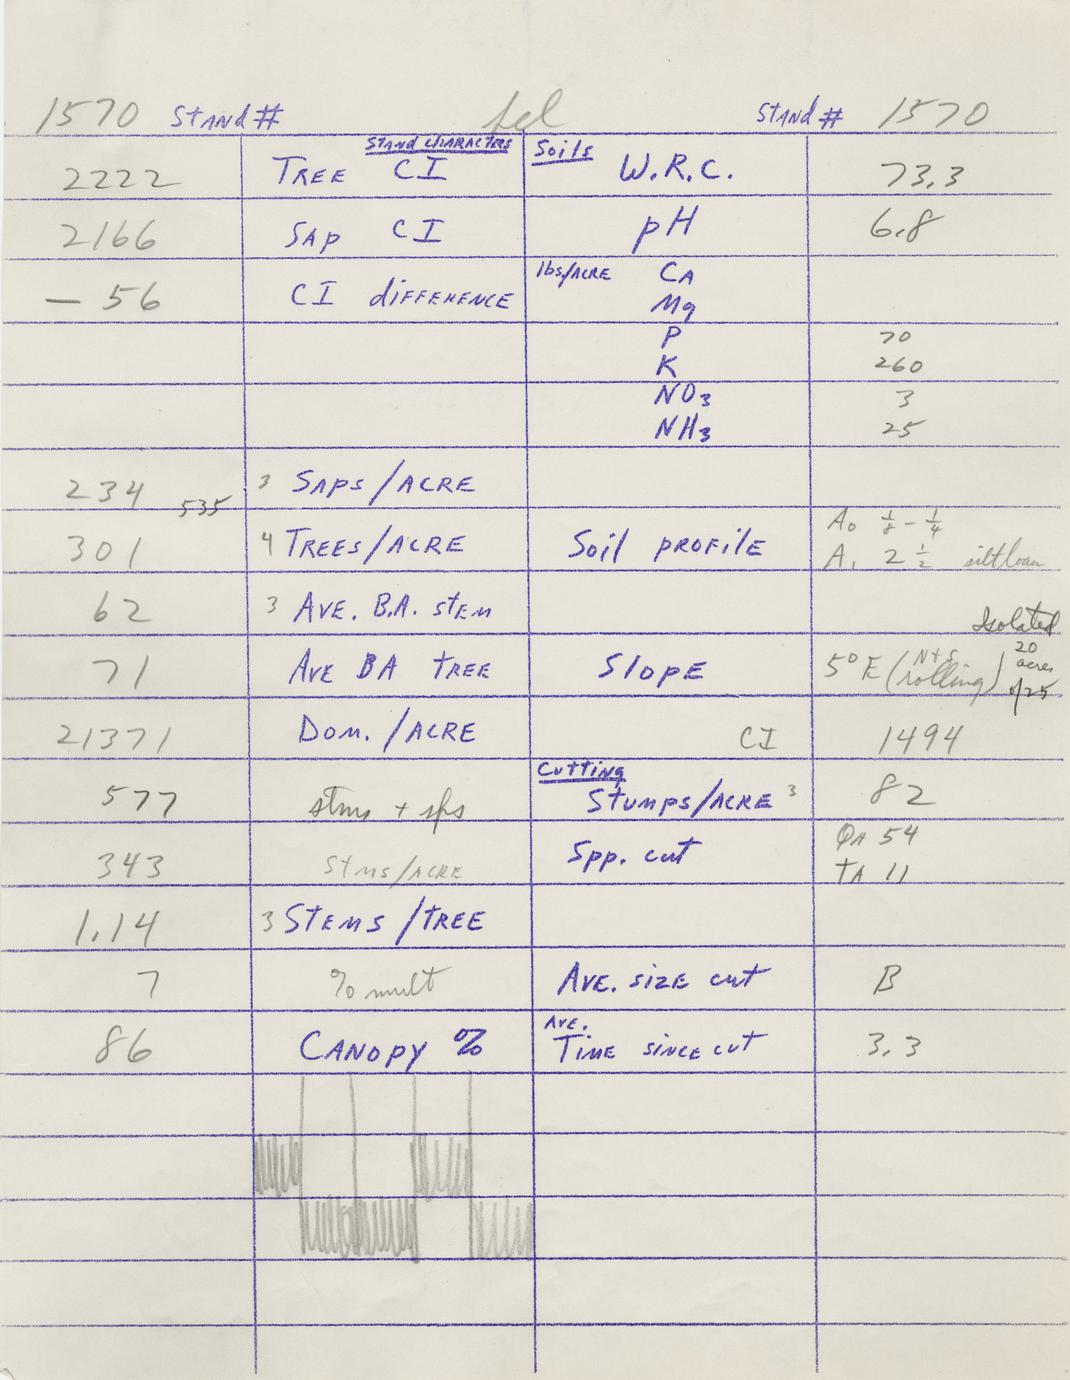 1570 Stand # Sel Stand # 1570
Stand Characters Soils
2222 Tree CI W.R.C. 73.3
2166 Sap CI pH 6.8
lbs/Acre Ca
- 56 CI difference
Mg
P 70
K 260
NO3 3
NH3 25
234 535 3 Saps/Acre
A0 1/8 - 1/4
301 4 Trees/Acre Soil profile A1 2 1/2 silt loam
62 3 Ave. B.A. stem
Isolated
71 Ave BA tree Slope 5° E (N+S rolling) 20 acres of 25
21371 Dom./Acre CI 1494
Cutting
577 stms + sps Stumps/Acre 3 82
343 stms/acre Spp. cut QA 54
TA 11
1.14 3 Stems/tree
7 % mult Ave. size cut B
86 Canopy % Ave. Time since cut 3.3